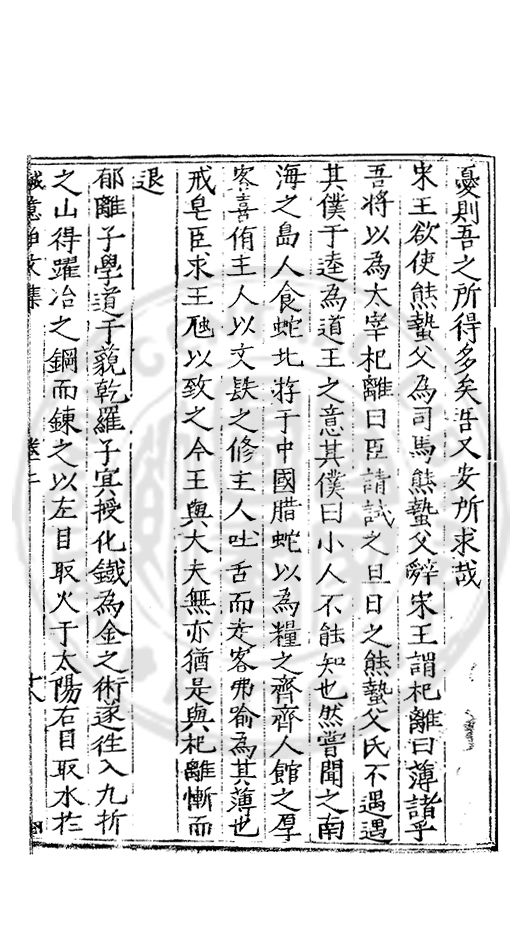 憂則吾之所得多矣吾又安所求哉
宋王欲使熊蟄父為司馬熊蟄父辭宋王謂杞離曰薄諸乎
吾將以為太宰杞離曰臣請試之旦日之熊蟄父氏不遇遇
其僕于逵為道王之意其僕曰小人不能知也然嘗聞之南
海之島人食蛇北將于中國腊蛇以為糧之齊齊人館之厚
客喜侑主人以文鏚之修主人吐舌而走客弗喻為其薄也
戒皂臣求王虺以致之今王與大夫無亦猶是與杞離慚而
退
郁離子學道于藐乾羅子冥授化鐵為金之術遂往入九折
之山得躍冶之鋼而鍊之以左目取火于太陽右目取水於
誠意伯文集 卷二 十八